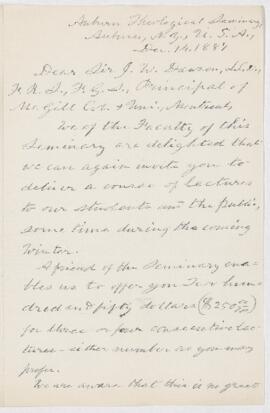 Auburn Theological Seminary,
Auburn, N.Y., U. S. A.,
Dec. 14. 1887
Dear Sir J. W. Dawson, LL.D.,
F. R. S., F. G. S., Principal of
Mc.Gill Col. & Uni., Montreal,
We of the Faculty of this
Seminary are delighted that
we can again invite you to
deliver a course of lectures
to our students and the public,
some time during the coming
Winter.
A friend of the Seminary ena-
bles us to offer you Two hun-
dred and fifty dollars ($250
for three or four consecutive lec-
tures - either number as you may
prefer.
We are aware that this is no great